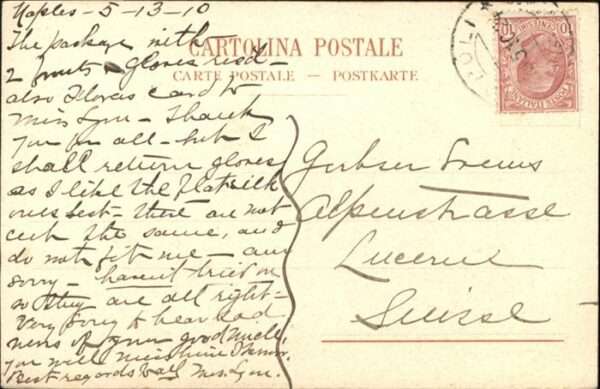 Naples - 5-13-10
The package with
2 fronts & gloves rec'd -
also Flora's card to
Miss Lyon - Thank
you for all - but I
shall return gloves
as I like the flat silk
ones best - these are not
cut the same, and
do not fit me - am
sorry - haven't tried on
so they are all right -
Very sorry to hear sad
news of your good
you will miss him I know.
Best regards to all Mrs Lyon.
CARTOLINA POSTALE
CARTE POSTALE - POSTKARTE
Gerbser
Alpenstrasse
Lucerne
Suisse
POSTE ITALIANE
10
NAPOLI